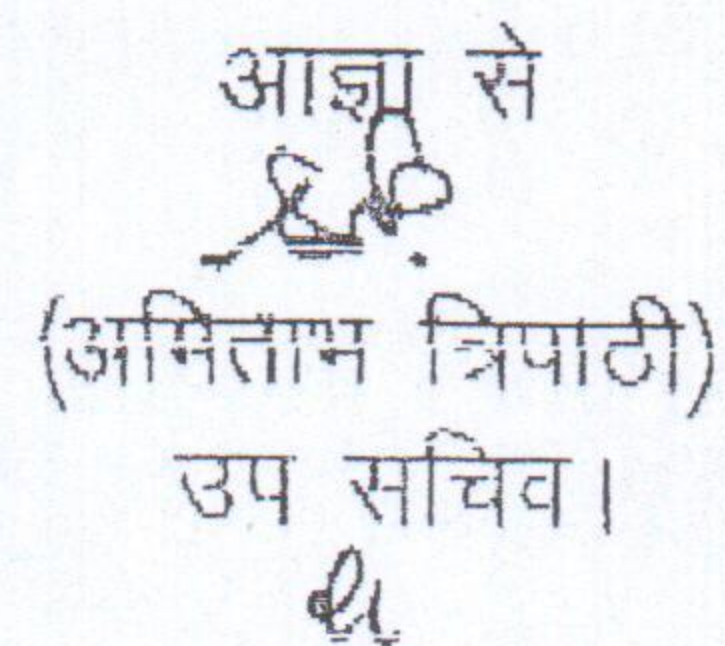 आज्ञा से
(अमिताभ त्रिपाठी)
उप सचिव।